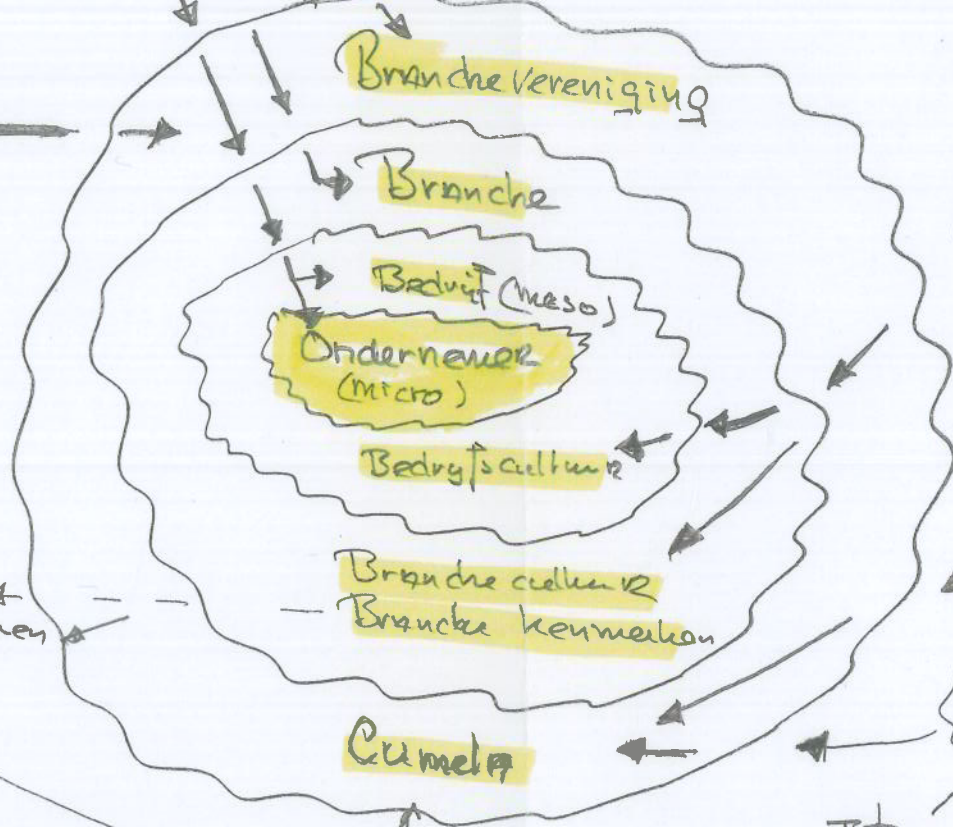 Branchevereniging
Branche
Bedrijf (meso)
Ondernemer
(micro)
Bedrijfscultuur
Branche cultuur
Branche kenmerken
Cumela